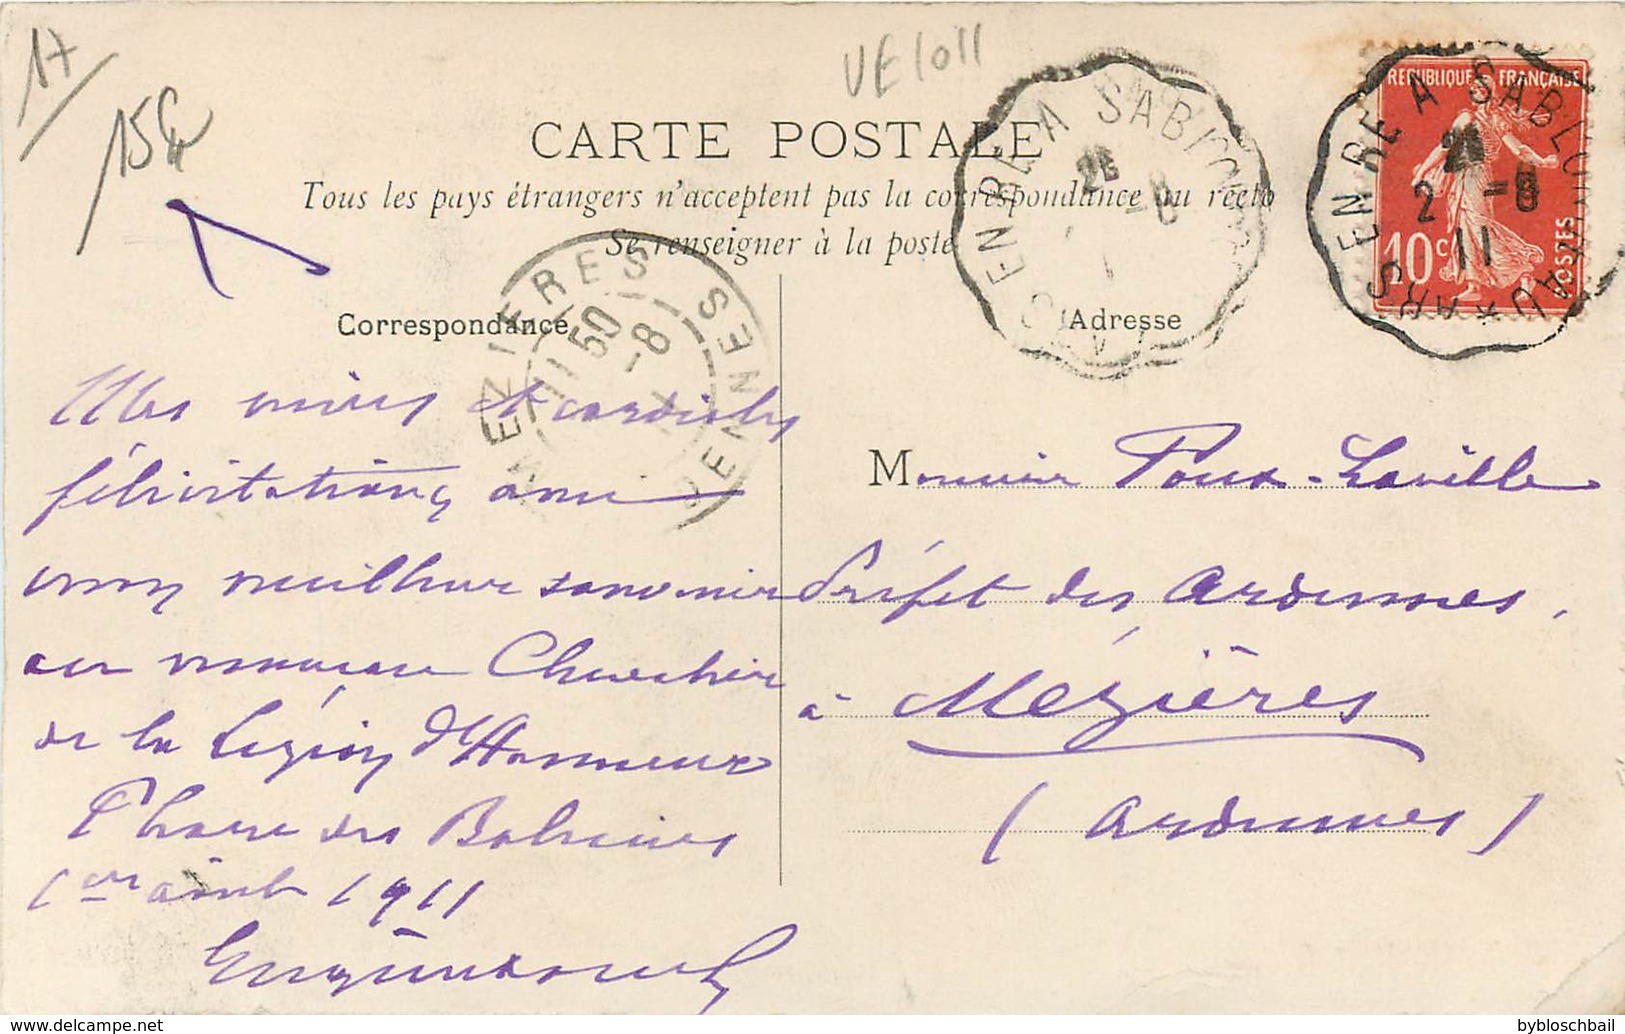 17
15€
VE1011
CARTE POSTALE
Tous les pays étrangers n'acceptent pas la correspondance au recto
Se renseigner à la poste
Correspondance
Adresse
REPUBLIQUE FRANÇAISE
10c POSTES
ARS EN RE A SABLONCEAUX
2 -8
11
ARS EN RE A SABLONCEAUX
-8
MEZIERES
11 50
-8
Mes vives et cordiales
félicitations avec
mon meilleur souvenir
au nouveau Chevalier
de la Légion d'Honneur
Phare des Baleines
1er août 1911
Monsieur Poux-Laville
Préfet des Ardennes,
à Mézières
(Ardennes)
bybloschbail